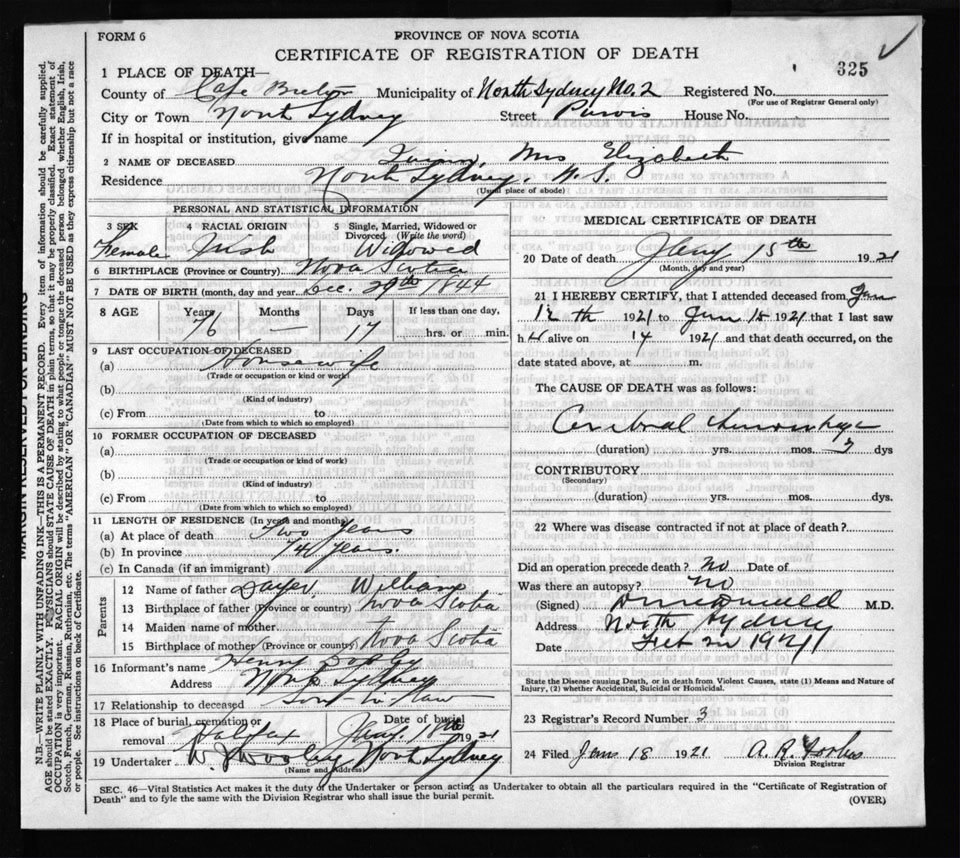 FORM 6
PROVINCE OF NOVA SCOTIA
CERTIFICATE OF REGISTRATION OF DEATH
325
1 PLACE OF DEATH—
County of Cape Breton Municipality of North Sydney No. 2 Registered No.
(For use of Registrar General only)
City or Town North Sydney Street Purvis House No.
If in hospital or institution, give name
2 NAME OF DECEASED Mrs Elizabeth
Residence North Sydney, N.S.
(Usual place of abode)
PERSONAL AND STATISTICAL INFORMATION
3 SEX 4 RACIAL ORIGIN 5 Single, Married, Widowed or Divorced. (Write the word)
Female Irish Widowed
6 BIRTHPLACE (Province or Country) Nova Scotia
7 DATE OF BIRTH (month, day and year) Dec. 29th 1844
8 AGE Years Months Days If less than one day,
76 — 17 hrs. or min.
9 LAST OCCUPATION OF DECEASED
(a) Housewife
(Trade or occupation or kind of work)
(b)
(Kind of industry)
(c) From to
(Date from which to which so employed)
10 FORMER OCCUPATION OF DECEASED
(a)
(Trade or occupation or kind of work)
(b)
(Kind of industry)
(c) From to
(Date from which to which so employed)
11 LENGTH OF RESIDENCE (In years and months)
(a) At place of death Two Years
(b) In province years.
(c) In Canada (if an immigrant)
Parents
12 Name of father William
13 Birthplace of father (Province or country) Nova Scotia
14 Maiden name of mother
15 Birthplace of mother (Province or country) Nova Scotia
16 Informant's name Henry
Address North Sydney
17 Relationship to deceased Son in law
18 Place of burial, cremation or removal Halifax Date of burial Jany. 18th 1921
19 Undertaker North Sydney
(Name and Address)
MEDICAL CERTIFICATE OF DEATH
20 Date of death Jany 15th 1921
(Month, day and year)
21 I HEREBY CERTIFY, that I attended deceased from Jan
12th 1921 to Jan 15 1921 that I last saw
her alive on 14 1921 and that death occurred, on the
date stated above, at m.
The CAUSE OF DEATH was as follows:
Cerebral
(duration) yrs. mos. 3 dys
CONTRIBUTORY
(Secondary)
(duration) yrs. mos. dys.
22 Where was disease contracted if not at place of death?
Did an operation precede death? No Date of
Was there an autopsy? No
(Signed) M.D.
Address North Sydney
Date
State the Disease causing Death, or in death from Violent Causes, state (1) Means and Nature of Injury, (2) whether Accidental, Suicidal or Homicidal.
23 Registrar's Record Number 3
24 Filed Jan 18 1921 A. R. Forbes
Division Registrar
SEC. 46—Vital Statistics Act makes it the duty of the Undertaker or person acting as Undertaker to obtain all the particulars required in the "Certificate of Registration of
Death" and to fyle the same with the Division Registrar who shall issue the burial permit.
(OVER)
MARGIN RESERVED FOR BINDING
N.B.—WRITE PLAINLY WITH UNFADING INK—THIS IS A PERMANENT RECORD. Every item of information should be carefully supplied.
AGE should be stated EXACTLY. PHYSICIANS should STATE CAUSE OF DEATH in plain terms, so that it may be properly classified. Exact statement of
OCCUPATION is very important. RACIAL ORIGIN will be described by stating to what people or tongue the deceased person belonged, whether English, Irish,
Scotch, French, German, Russian, Ruthenian, etc. The terms "AMERICAN" OR "CANADIAN" MUST NOT BE USED as they express citizenship but not a race
or people. See instructions on back of Certificate.